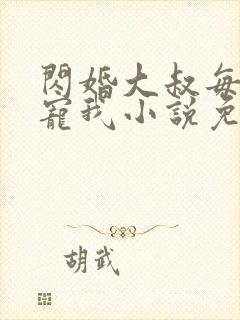 閃婚大叔每
寵我小說免
胡武